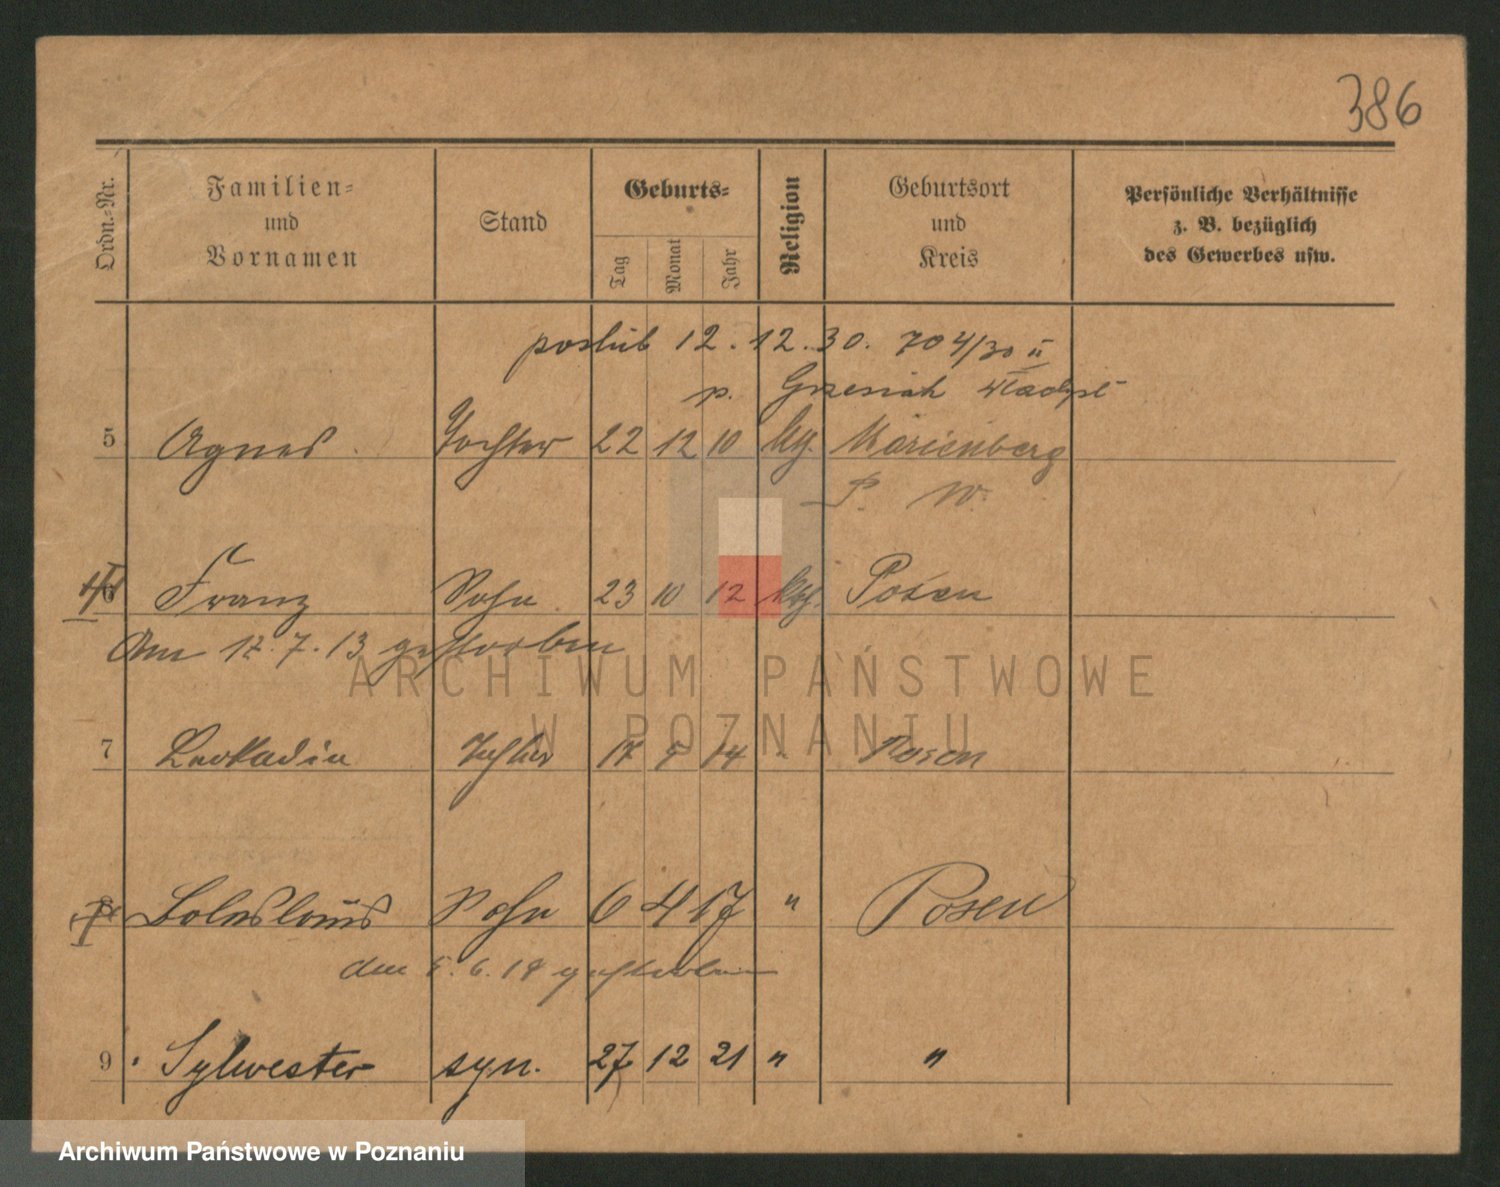 386
Ordn.-Nr. Familien- und Vornamen Stand Geburts- Tag Monat Jahr Religion Geburtsort und Kreis Persönliche Verhältnisse z. B. bezüglich des Gewerbes usw.
poślub 12.12.30. 704/30 II
p. Grzesiak
5 Agnes. Tochter 22 12 10 Marienberg
P. W.
6 Franz Sohn 23 10 12 kth. Posen
Am 12.7.13 gestorben
7 Leokadia Tochter 17 9 14 " Posen
8 Boleslaus Sohn 6 4 17 " Posen
den 5.6.18 gestorben
9 Sylwester syn. 27 12 21 " "
ARCHIWUM PAŃSTWOWE
W POZNANIU
Archiwum Państwowe w Poznaniu